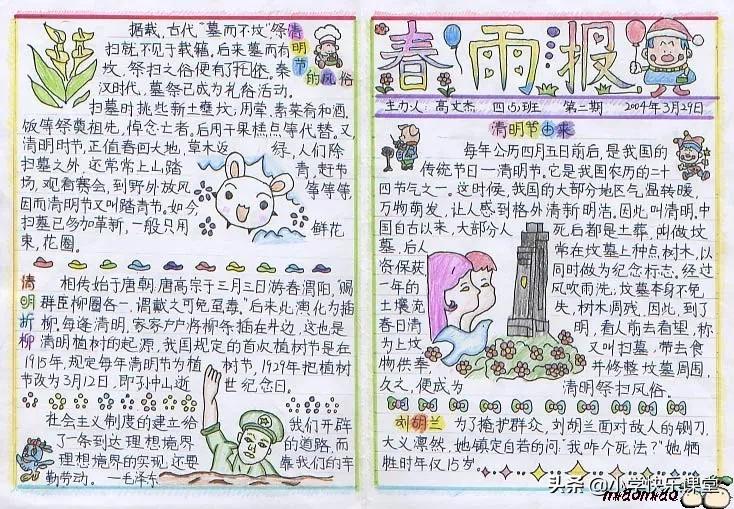 据载,古代"墓而不坟",祭
扫就不见于载籍,后来墓而有
坟,祭扫之俗便有了托依。秦
汉时代,墓祭已成为礼俗活动。
清明节的风俗
扫墓时挑些新土壅坟;用荤、素菜肴和酒、
饭等祭奠祖先,悼念亡者。后用干果糕点等代替。又,
清明时节,正值春回大地,草木返绿,人们除
扫墓之外,还常常上山踏青,赶节
场,观看赛会,到野外放风筝等等,
因而清明节又叫踏青节。如今,
扫墓已多加革新,一般只用鲜花
束,花圈。
清明折柳
相传始于唐朝,唐高宗于三月三日游春渭阳,"赐
群臣柳圈各一,谓戴之可免虿毒。"后来此演化为插
柳,每逢清明,家家户户将柳条插在井边,这也是
清明植树的起源,我国规定的首次植树节是在
1915年,规定每年清明节为植树节,1929年把植树
节改为3月12日,即孙中山逝世纪念日。
社会主义制度的建立给我们开辟
了一条到达理想境界的道路,而
理想境界的实现,还要靠我们的辛
勤劳动。—毛泽东
春雨报
主办人:高文杰 四(5)班 第二期 2009年3月29日
清明节由来
每年公历四月五日前后,是我国的
传统节日—清明节。它是我国农历的二十
四节气之一。这时候,我国的大部分地区气温转暖,
万物萌发,让人感到格外清新明洁。因此叫清明。中
国自古以来,大部分人死后都是土葬,叫做坟
墓,后人常在坟墓上种点树木,以
资保获同时做为纪念标志。经过
一年的风吹雨洗,坟墓本身不免
土壤充失,树木凋残,因此,到了
春日清明,看人前去看望,称
为上坟又叫扫墓,带去食
物供奉并修整坟墓周围,
久之,便成为清明祭扫风俗。
刘胡兰
为了掩护群众,刘胡兰面对敌人的铡刀,
大义凛然,她镇定自若的问:"我咋个死法?"她牺
牲时年仅15岁。
头条@小学快乐课堂